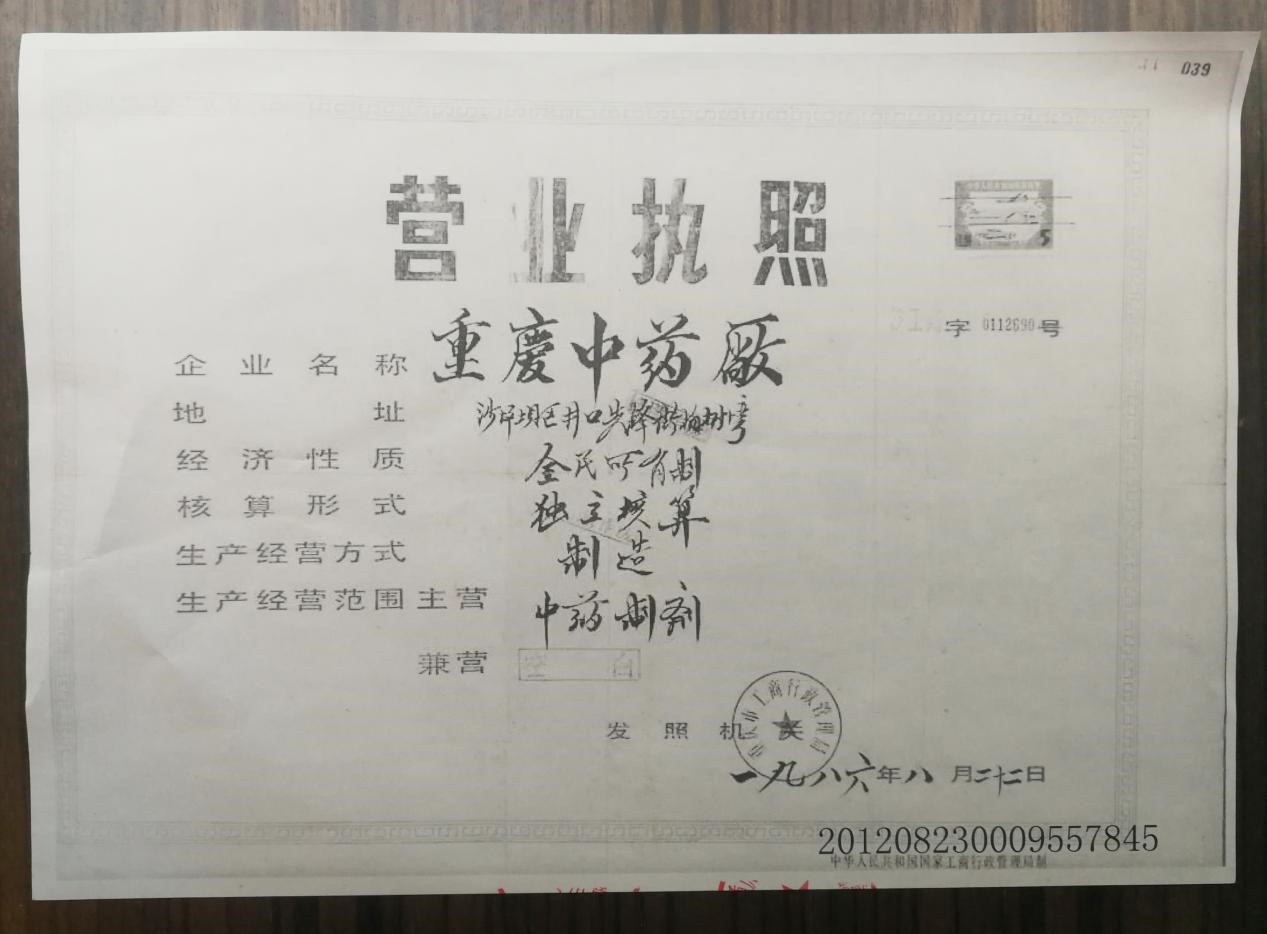 039
营业执照
5
字 0112690 号
企业名称 重慶中药厰
地址 沙坪坝区井口先锋街柏树湾
经济性质 全民所有制
核算形式 独立核算
生产经营方式 制造
生产经营范围 主营 中药制剂
兼营 空白
发照机关
重庆市工商行政管理局
一九八六年八月二十二日
201208230009557845
中华人民共和国国家工商行政管理局制